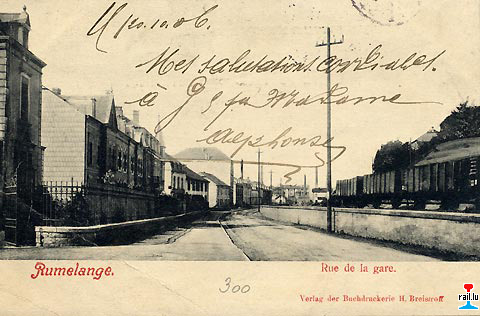 Mes salutations cordiales.
à
Madame
Alphonse
Rumelange.
Rue de la gare.
300
Verlag der Buchdruckerei H. Breisdroff
rail.lu